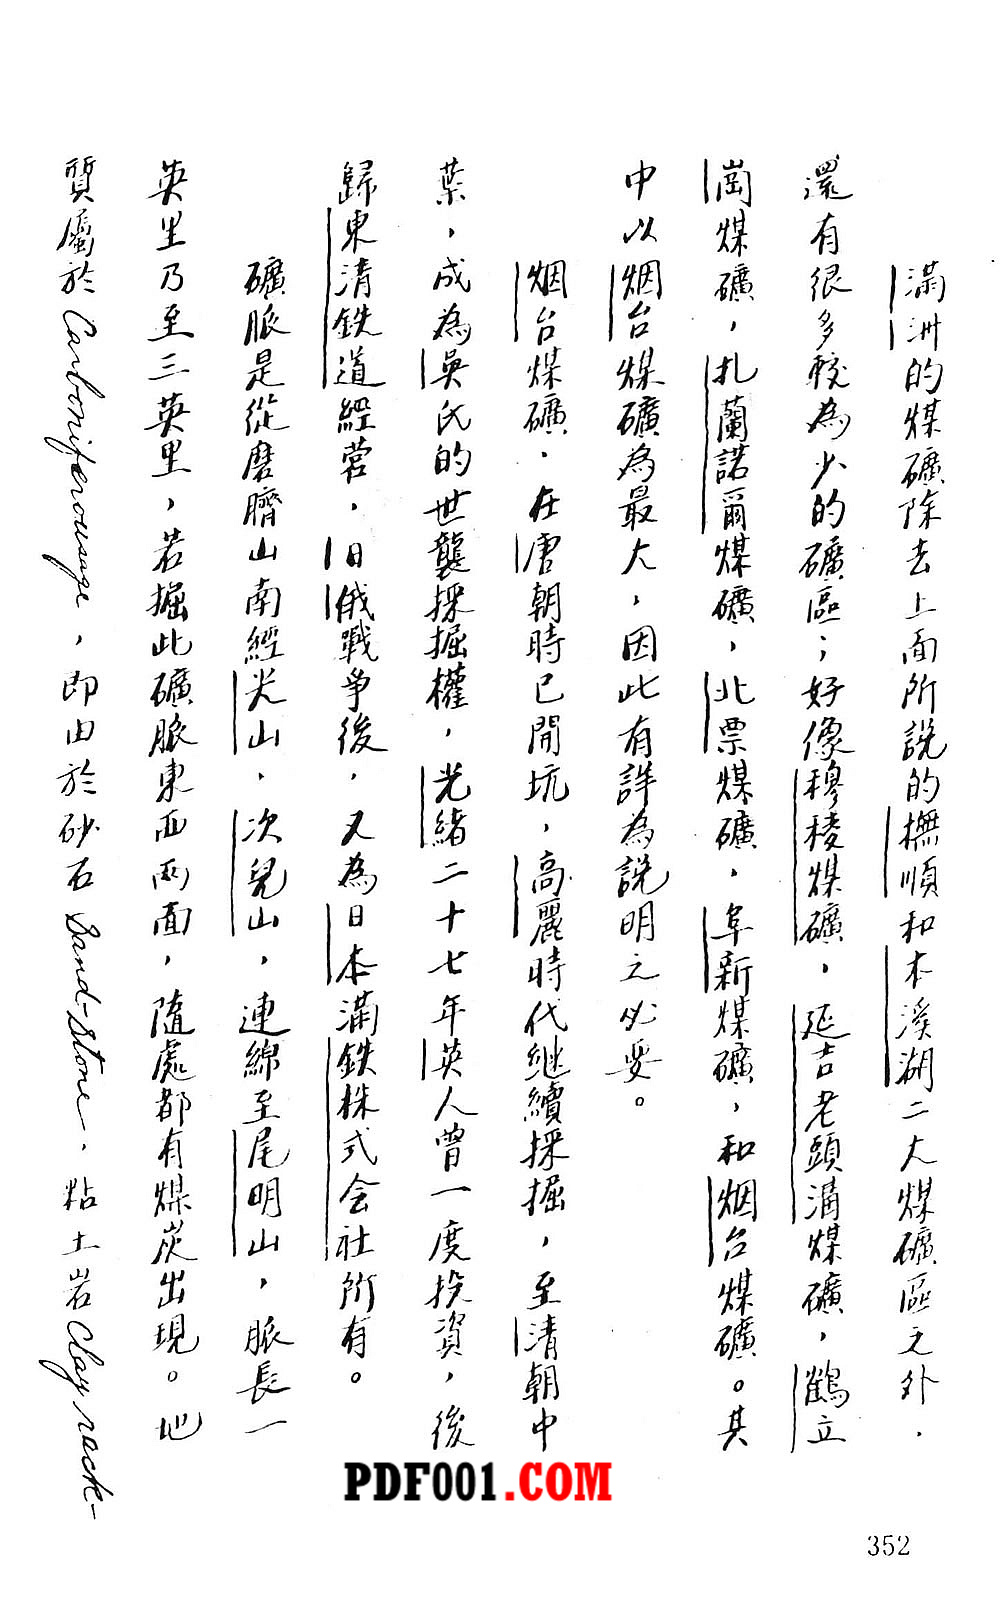 滿洲的煤礦除去上面所説的撫順和本溪湖二大煤礦區之外，
還有很多較為少的礦區；好像穆稜煤礦，延吉老頭溝煤礦，鶴立
崗煤礦，扎蘭諾爾煤礦，北票煤礦，阜新煤礦，和烟台煤礦。其
中以烟台煤礦為最大，因此有詳為説明之必要。
烟台煤礦．在唐朝時已開坑，高麗時代继續採掘，至清朝中
葉，成為吳氏的世襲採掘權，光緒二十七年英人曾一度投資，後
歸東清鉄道經營，日俄戰爭後，又為日本滿鉄株式会社所有。
礦脈是從磨臍山南經尖山，次兒山，連綿至尾明山，脈長一
英里乃至三英里，若掘此礦脈東西兩面，隨處都有煤炭出現。地
質屬於 Carboniferousage，即由於砂石 Sand-Stone，粘土岩 Clay rack-
PDF001.COM
352